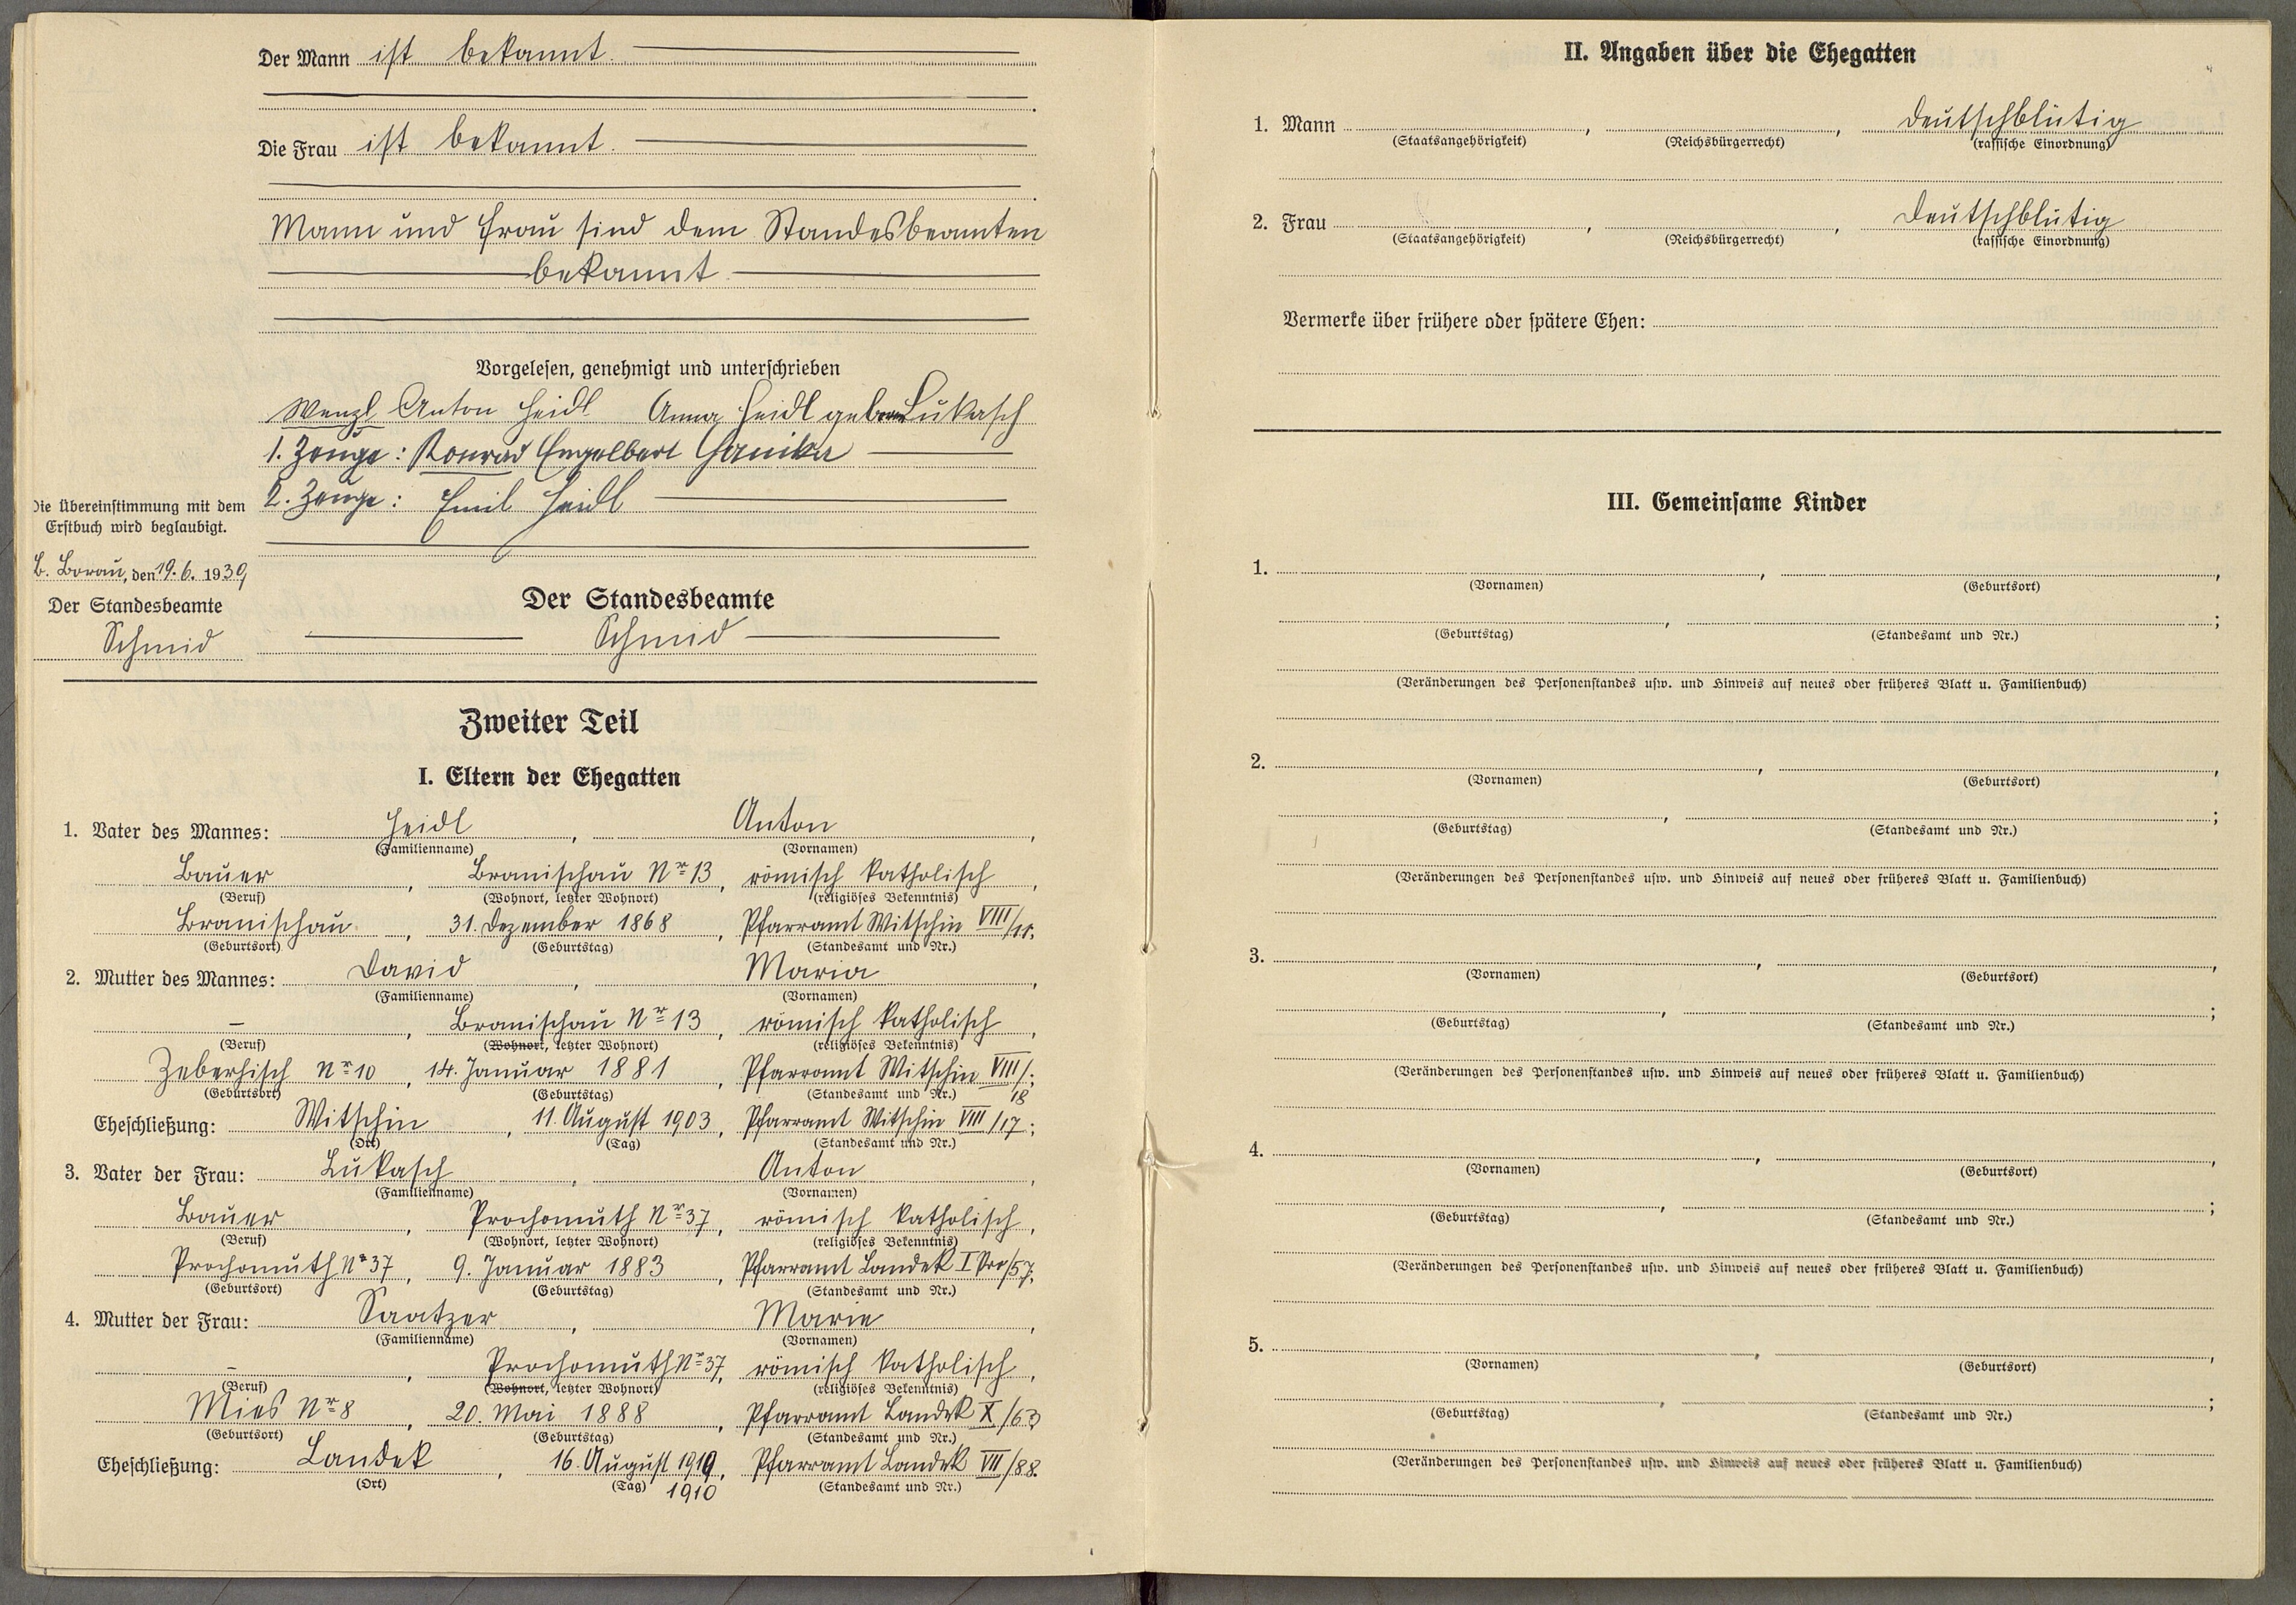 Der Mann ist bekannt.
Die Frau ist bekannt.
Mann und Frau sind dem Standesbeamten
bekannt.
Vorgelesen, genehmigt und unterschrieben
Wenzl Anton Heidl Anna Heidl geborene Lukasch
1. Zeuge: Konrad Engelbert Hanika
2. Zeuge: Emil Heidl
Die Übereinstimmung mit dem
Erstbuch wird beglaubigt.
den 19. 6. 1939
Der Standesbeamte
Schmid
Der Standesbeamte
Schmid
Zweiter Teil
I. Eltern der Ehegatten
1. Vater des Mannes: Heidl, Anton,
(Familienname) (Vornamen)
Bauer, Branischau Nr 13, römisch katholisch,
(Beruf) (Wohnort, letzter Wohnort) (religiöses Bekenntnis)
Branischau, 31. Dezember 1868, Pfarramt Witschin VIII/11;
(Geburtsort) (Geburtstag) (Standesamt und Nr.)
2. Mutter des Mannes: David, Maria,
(Familienname) (Vornamen)
–, Branischau Nr 13, römisch katholisch,
(Beruf) (Wohnort, letzter Wohnort) (religiöses Bekenntnis)
Zeberhisch Nr 10, 14. Januar 1881, Pfarramt Witschin VIII/;
18
(Geburtsort) (Geburtstag) (Standesamt und Nr.)
Eheschließung: Witschin, 11. August 1903, Pfarramt Witschin VIII/17;
(Ort) (Tag) (Standesamt und Nr.)
3. Vater der Frau: Lukasch, Anton,
(Familienname) (Vornamen)
Bauer, Prochomuth Nr 37, römisch katholisch,
(Beruf) (Wohnort, letzter Wohnort) (religiöses Bekenntnis)
Prochomuth Nr 37, 9. Januar 1883, Pfarramt Landek I Pro/57;
(Geburtsort) (Geburtstag) (Standesamt und Nr.)
4. Mutter der Frau: Saatzer, Marie,
(Familienname) (Vornamen)
–, Prochomuth Nr 37, römisch katholisch,
(Beruf) (Wohnort, letzter Wohnort) (religiöses Bekenntnis)
Mies Nr 8, 20. Mai 1888, Pfarramt Landek X/63
(Geburtsort) (Geburtstag) (Standesamt und Nr.)
Eheschließung: Landek, 16. August 1910, Pfarramt Landek VII/88.
(Ort) (Tag) 1910 (Standesamt und Nr.)
II. Angaben über die Ehegatten
1. Mann , , deutschblütig
(Staatsangehörigkeit) (Reichsbürgerrecht) (rassische Einordnung)
2. Frau , , deutschblütig
(Staatsangehörigkeit) (Reichsbürgerrecht) (rassische Einordnung)
Vermerke über frühere oder spätere Ehen:
III. Gemeinsame Kinder
1. , ,
(Vornamen) (Geburtsort)
, ;
(Geburtstag) (Standesamt und Nr.)
(Veränderungen des Personenstandes usw. und Hinweis auf neues oder früheres Blatt u. Familienbuch)
2. , ,
(Vornamen) (Geburtsort)
, ;
(Geburtstag) (Standesamt und Nr.)
(Veränderungen des Personenstandes usw. und Hinweis auf neues oder früheres Blatt u. Familienbuch)
3. , ,
(Vornamen) (Geburtsort)
, ;
(Geburtstag) (Standesamt und Nr.)
(Veränderungen des Personenstandes usw. und Hinweis auf neues oder früheres Blatt u. Familienbuch)
4. , ,
(Vornamen) (Geburtsort)
, ;
(Geburtstag) (Standesamt und Nr.)
(Veränderungen des Personenstandes usw. und Hinweis auf neues oder früheres Blatt u. Familienbuch)
5. , ,
(Vornamen) (Geburtsort)
, ;
(Geburtstag) (Standesamt und Nr.)
(Veränderungen des Personenstandes usw. und Hinweis auf neues oder früheres Blatt u. Familienbuch)